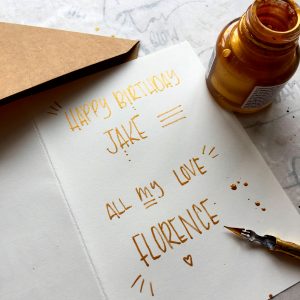 HAPPY BIRTHDAY
JAKE
ALL my LOVE
FLORENCE